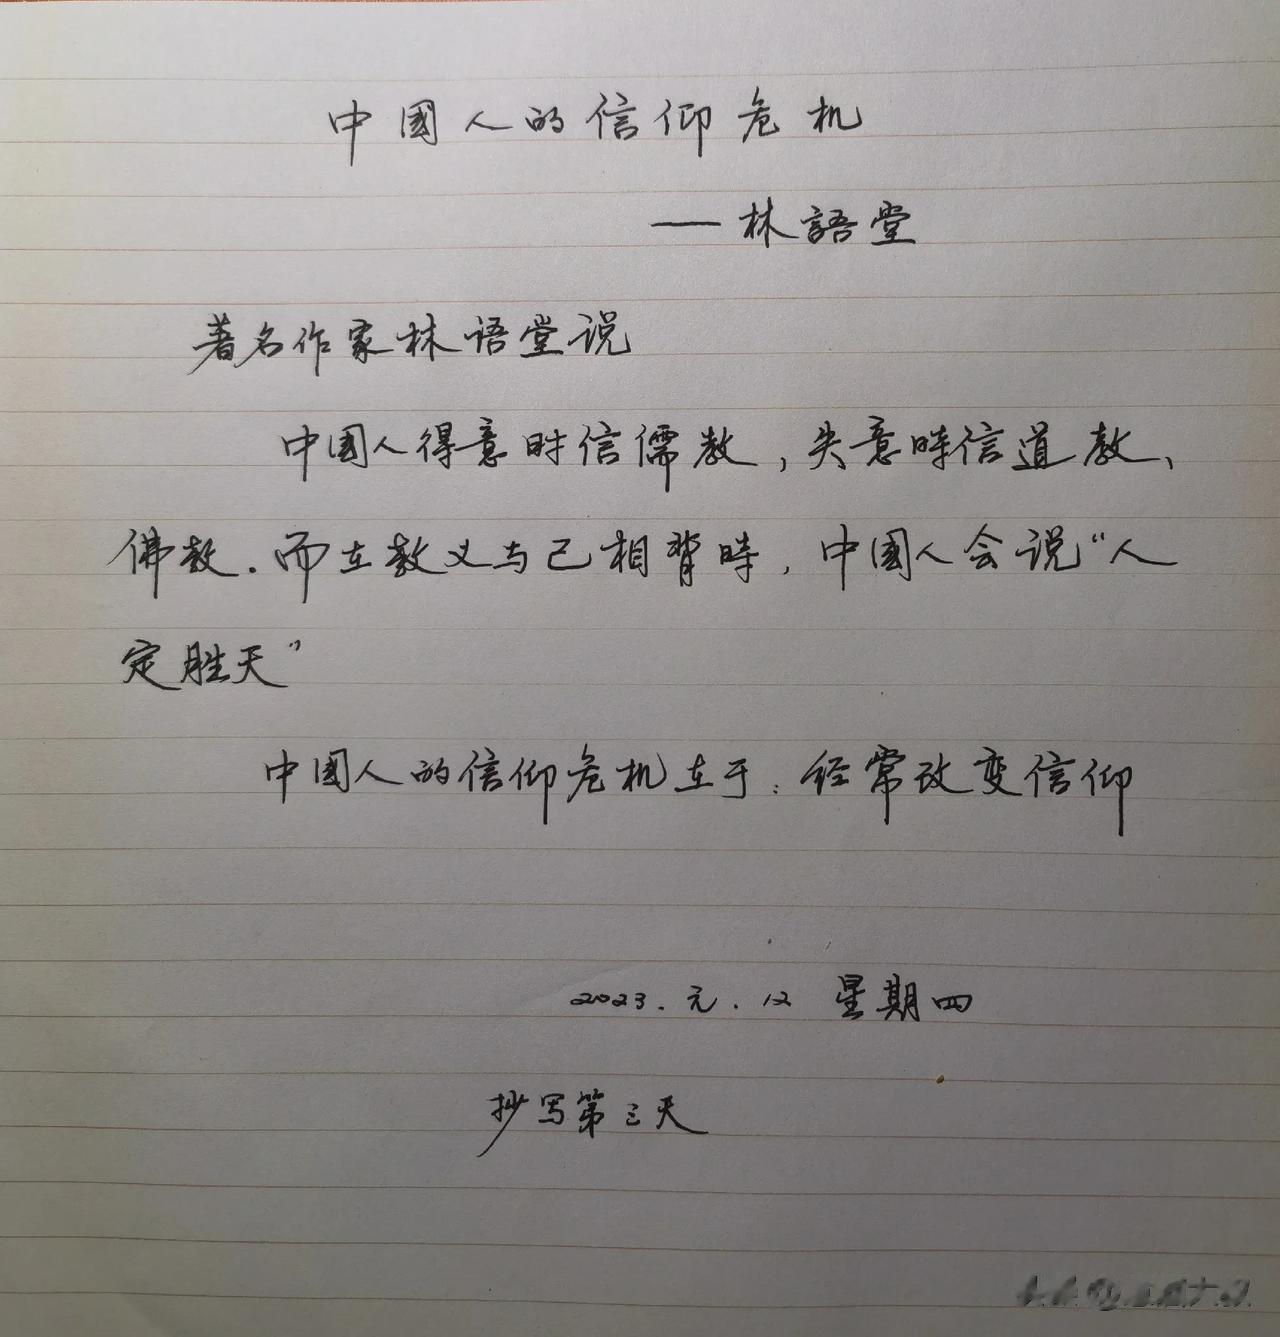 中國人的信仰危机
——林語堂
著名作家林语堂说
中国人得意时信儒教，失意時信道教、
佛教．而在教义与己相背時，中國人会说“人
定胜天”
中國人的信仰危机在于：经常改变信仰
2023．元．12 星期四
抄写第三天